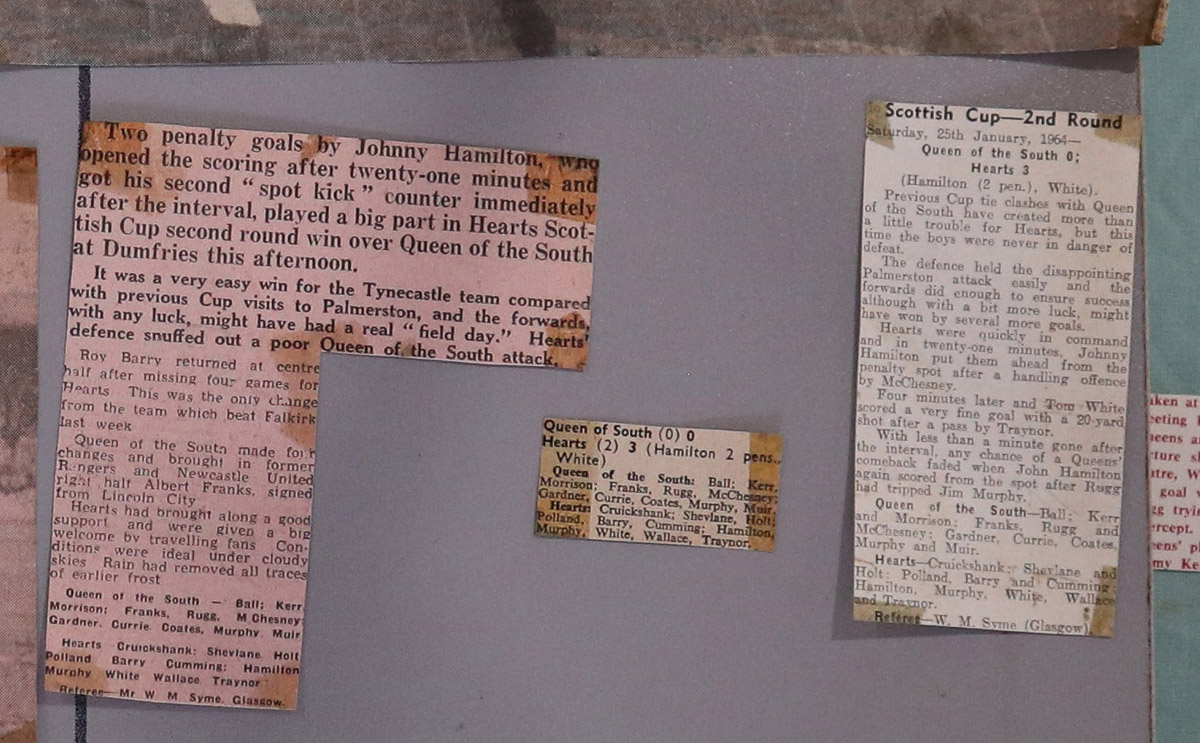 Two penalty goals by Johnny Hamilton, who
opened the scoring after twenty-one minutes and
got his second "spot kick" counter immediately
after the interval, played a big part in Hearts Scot-
tish Cup second round win over Queen of the South
at Dumfries this afternoon.
It was a very easy win for the Tynecastle team compared
with previous Cup visits to Palmerston, and the forwards,
with any luck, might have had a real "field day." Hearts'
defence snuffed out a poor Queen of the South attack.
Roy Barry returned at centre
half after missing four games for
Hearts This was the only change
from the team which beat Falkirk
last week
Queen of the South made four
changes and brought in former
Rangers and Newcastle United
right half Albert Franks, signed
from Lincoln City
Hearts had brought along a good
support and were given a big
welcome by travelling fans Con-
ditions were ideal under cloudy
skies Rain had removed all traces
of earlier frost
Queen of the South — Ball; Kerr
Morrison; Franks, Rugg, McChesney;
Gardner, Currie, Coates, Murphy Muir
Hearts Cruickshank; Shevlane Holt
Polland Barry Cumming; Hamilton
Murphy White Wallace Traynor
Referee—Mr W M Syme, Glasgow.
Queen of South (0) 0
Hearts (2) 3 (Hamilton 2 pens.,
White)
Queen of the South: Ball; Kerr,
Morrison; Franks, Rugg, McChesney;
Gardner, Currie, Coates, Murphy, Muir.
Hearts: Cruickshank; Shevlane, Holt;
Polland, Barry, Cumming; Hamilton,
Murphy, White, Wallace, Traynor.
Scottish Cup—2nd Round
Saturday, 25th January, 1964—
Queen of the South 0;
Hearts 3
(Hamilton (2 pen.), White).
Previous Cup tie clashes with Queen
of the South have created more than
a little trouble for Hearts, but this
time the boys were never in danger of
defeat.
The defence held the disappointing
Palmerston attack easily and the
forwards did enough to ensure success
although with a bit more luck, might
have won by several more goals.
Hearts were quickly in command
and in twenty-one minutes, Johnny
Hamilton put them ahead from the
penalty spot after a handling offence
by McChesney.
Four minutes later and Tom White
scored a very fine goal with a 20-yard
shot after a pass by Traynor.
With less than a minute gone after
the interval, any chance of a Queens'
comeback faded when John Hamilton
again scored from the spot after Rugg
had tripped Jim Murphy.
Queen of the South—Ball; Kerr
and Morrison; Franks, Rugg and
McChesney; Gardner, Currie, Coates,
Murphy and Muir.
Hearts—Cruickshank; Shevlane and
Holt; Polland, Barry and Cumming
Hamilton, Murphy, White, Wallace
and Traynor.
Referee—W. M. Syme (Glasgow).